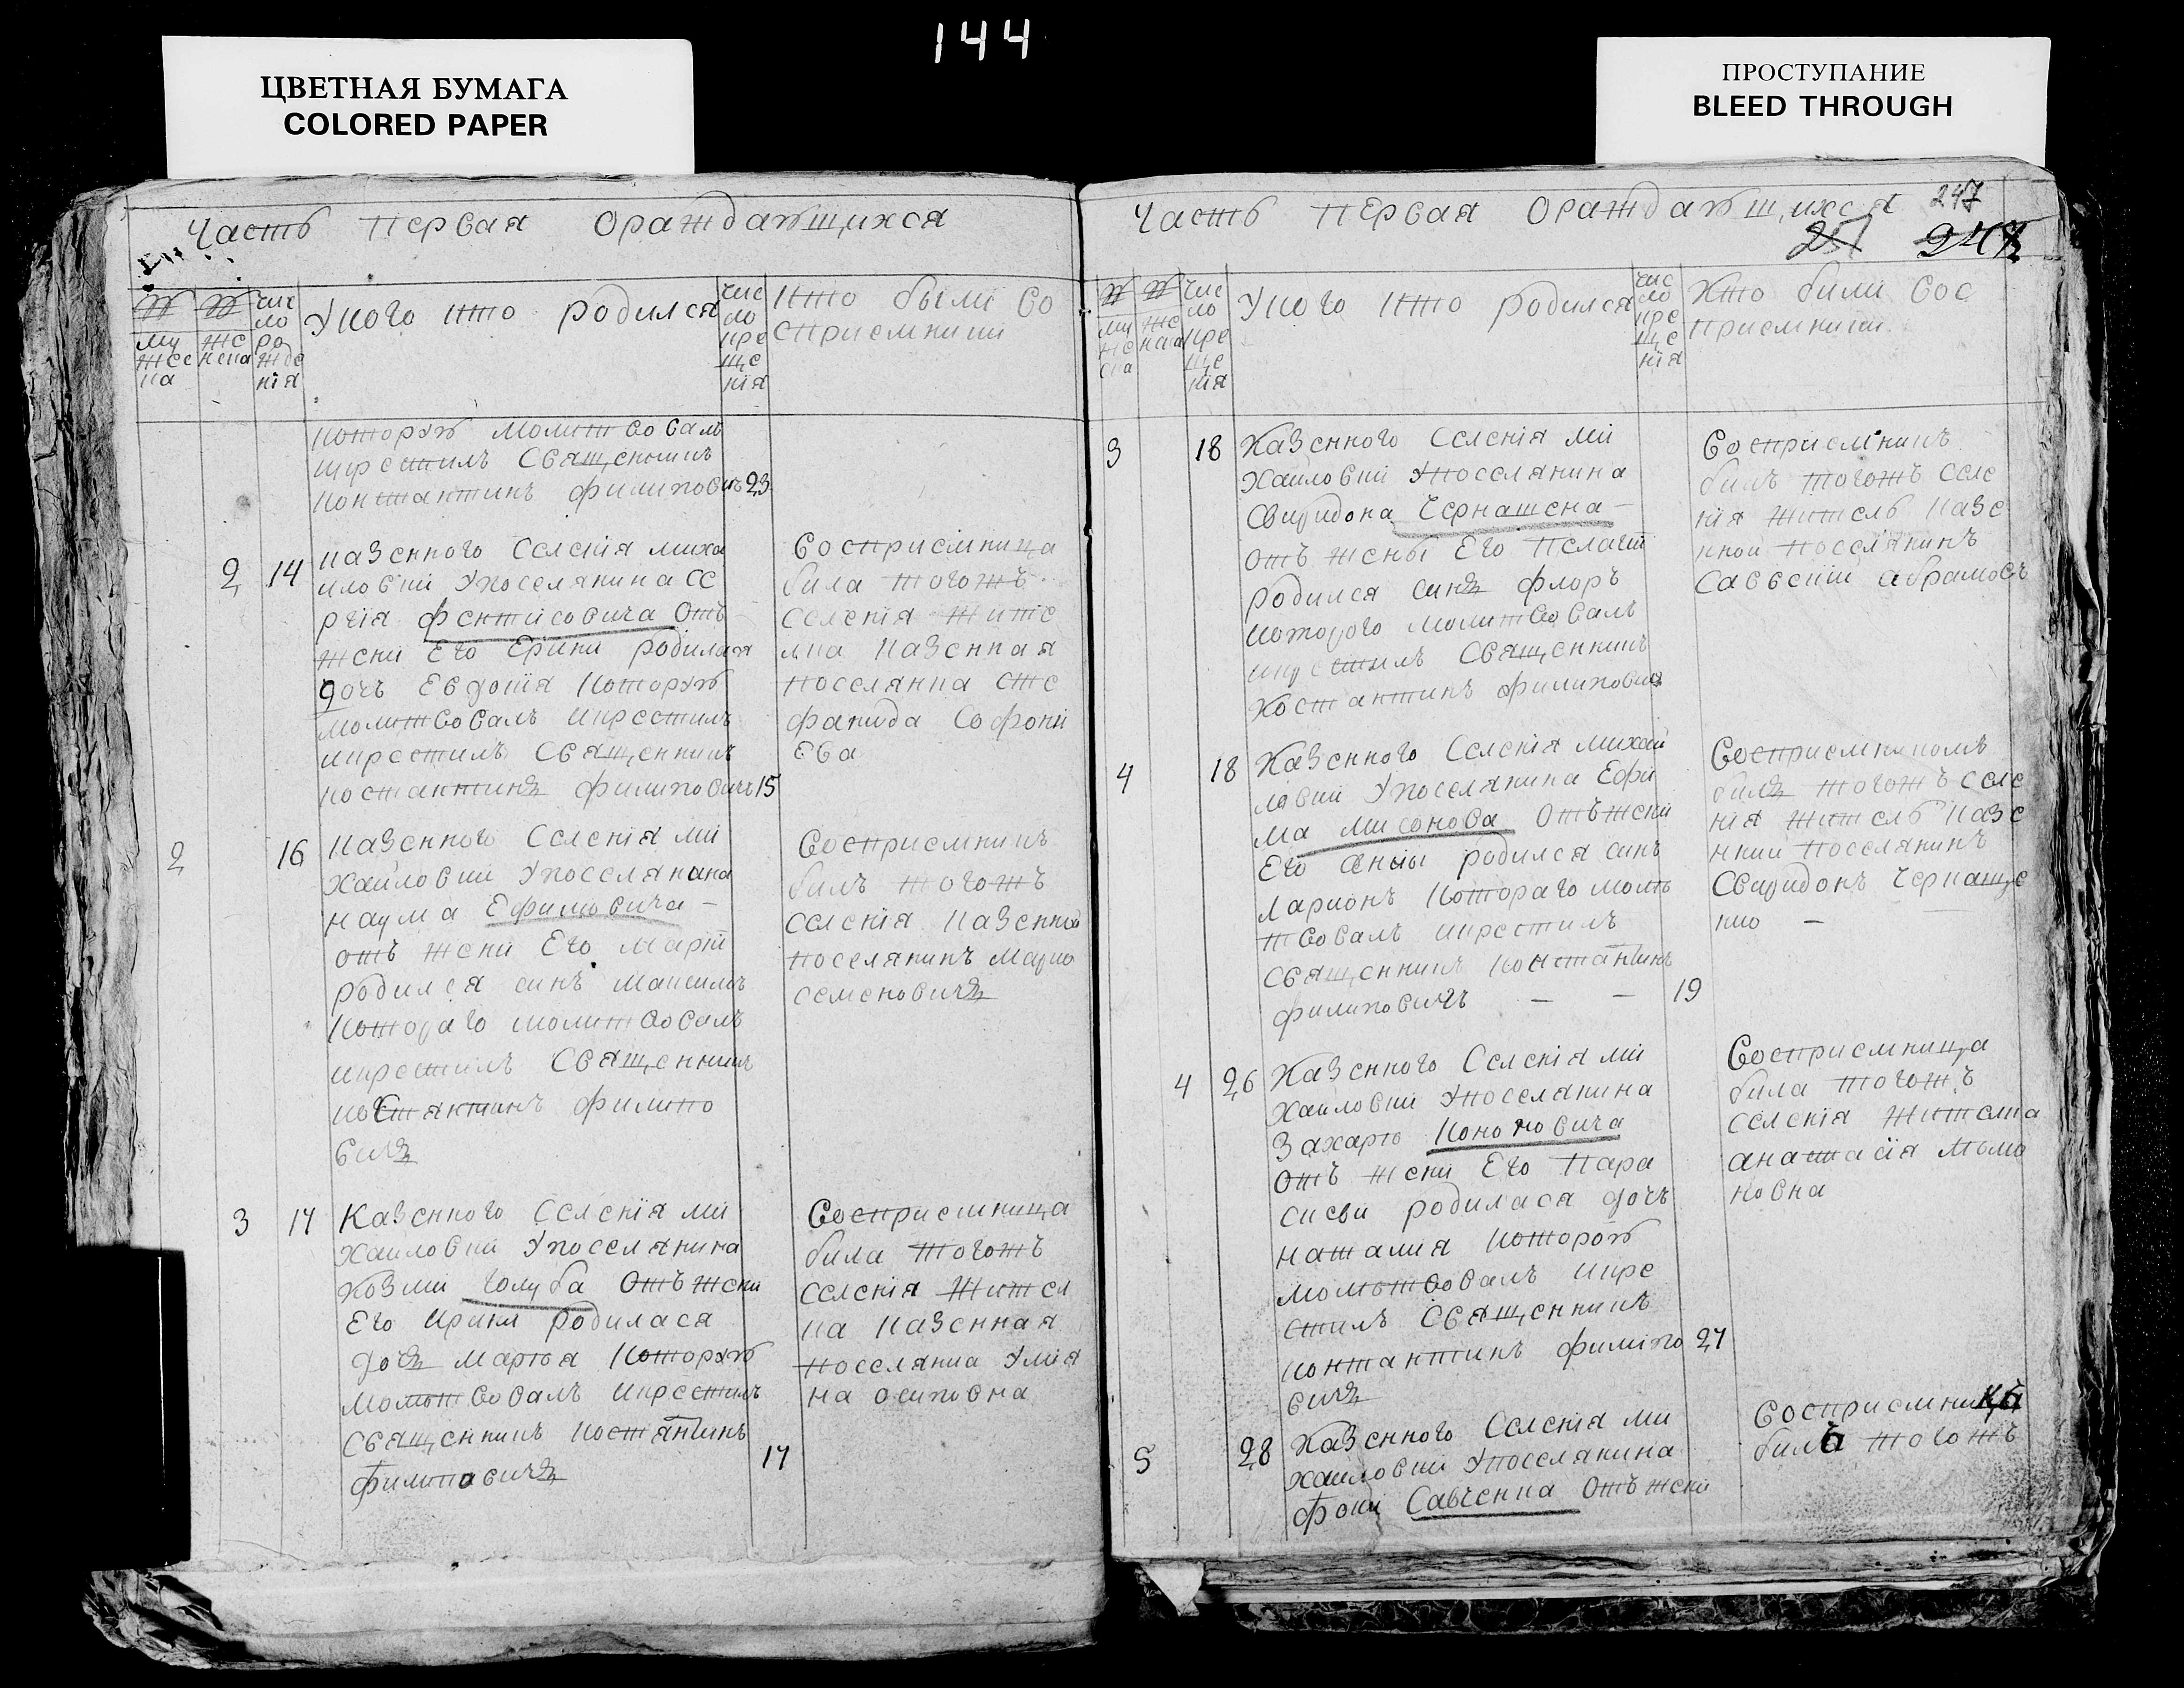 144
ЦВЕТНАЯ БУМАГА
COLORED PAPER
ПРОСТУПАНИЕ
BLEED THROUGH
Часть Первая Ораждающихся
му
жес
ка
же
нска
чис
ло
ро
жде
нія
Укого кто родился
чис
ло
кре
ще
нія
кто были во
сприемники
которую молитвовалъ
икрестилъ священникъ
Константинъ филиповичъ 23
2 14
казенного селенія миха
иловки упоселянина се
ргія фентисовича отъ
жени Его Ерини родилася
дочь Евдокія которую
молитвовалъ икрестилъ
икрестилъ священникъ
костантинъ филиповичъ 15
восприемница
била тогожъ
селенія жите
лка казенная
поселянка сте
фанида софоні
ева
2 16
казенного селенія ми
хайловки упоселянина
наума Ефимовича —
отъ жени Его маріи
родился синъ максимъ
котораго молитвовалъ
икрестилъ священникъ
костантинъ филипо
вичъ
восприемникъ
билъ тогожъ
селенія казенной
поселянинъ марко
семеновичъ
3 17
Казенного селенія ми
хайловки упоселянина
козми голуба отъ жени
Его ирини родилася
дочь марфа которую
молитвовалъ икрестилъ
священникъ костантинъ
филиповичъ
17
восприемница
била тогожъ
селенія жител
ка казенная
поселянка улия
на осиповна
Часть Первая Ораждающихся
247
251 247
му
же
ска
же
нска
чис
ло
кре
ще
нія
Укого кто родился
чис
ло
кре
ще
нія
Кто били вос
приемники
3 18
Казенного селенія ми
хайловки упоселянина
свиридона чернашена —
отъ жены Его пелагіи
родился синъ флоръ
которого молитвовалъ
икрестилъ священникъ
Костантинъ филиповичъ
восприемникъ
билъ тогожъ селе
нія житель казе
нной поселянинъ
савьекій абрамовъ
4 18
Казенного селенія михай
ловки упоселянина Ефи
ма мисонова отъ жени
Его анны родился синъ
Ларионъ котораго моли
твовалъ икрестилъ
священникъ константинъ
филиповичъ — — 19
восприемникомъ
билъ тогожъ селе
нія житель казе
нкий поселянинъ
свиридонъ чернаще
нко —
4 26
Казенного селенія ми
хайловки упоселянина
Захарю Кононовича
отъ жени Его Пара
скеви родилася дочь
наталия которою
молитвовалъ икре
стилъ священникъ
контантинъ филипо 27
вичъ
восприемница
била тогожъ
селенія жителка
анатасія момо
новна
5 28
Казенного селенія ми
хайловки упоселянина
фоки савченка отъ жени
восприемница
била тогожъ